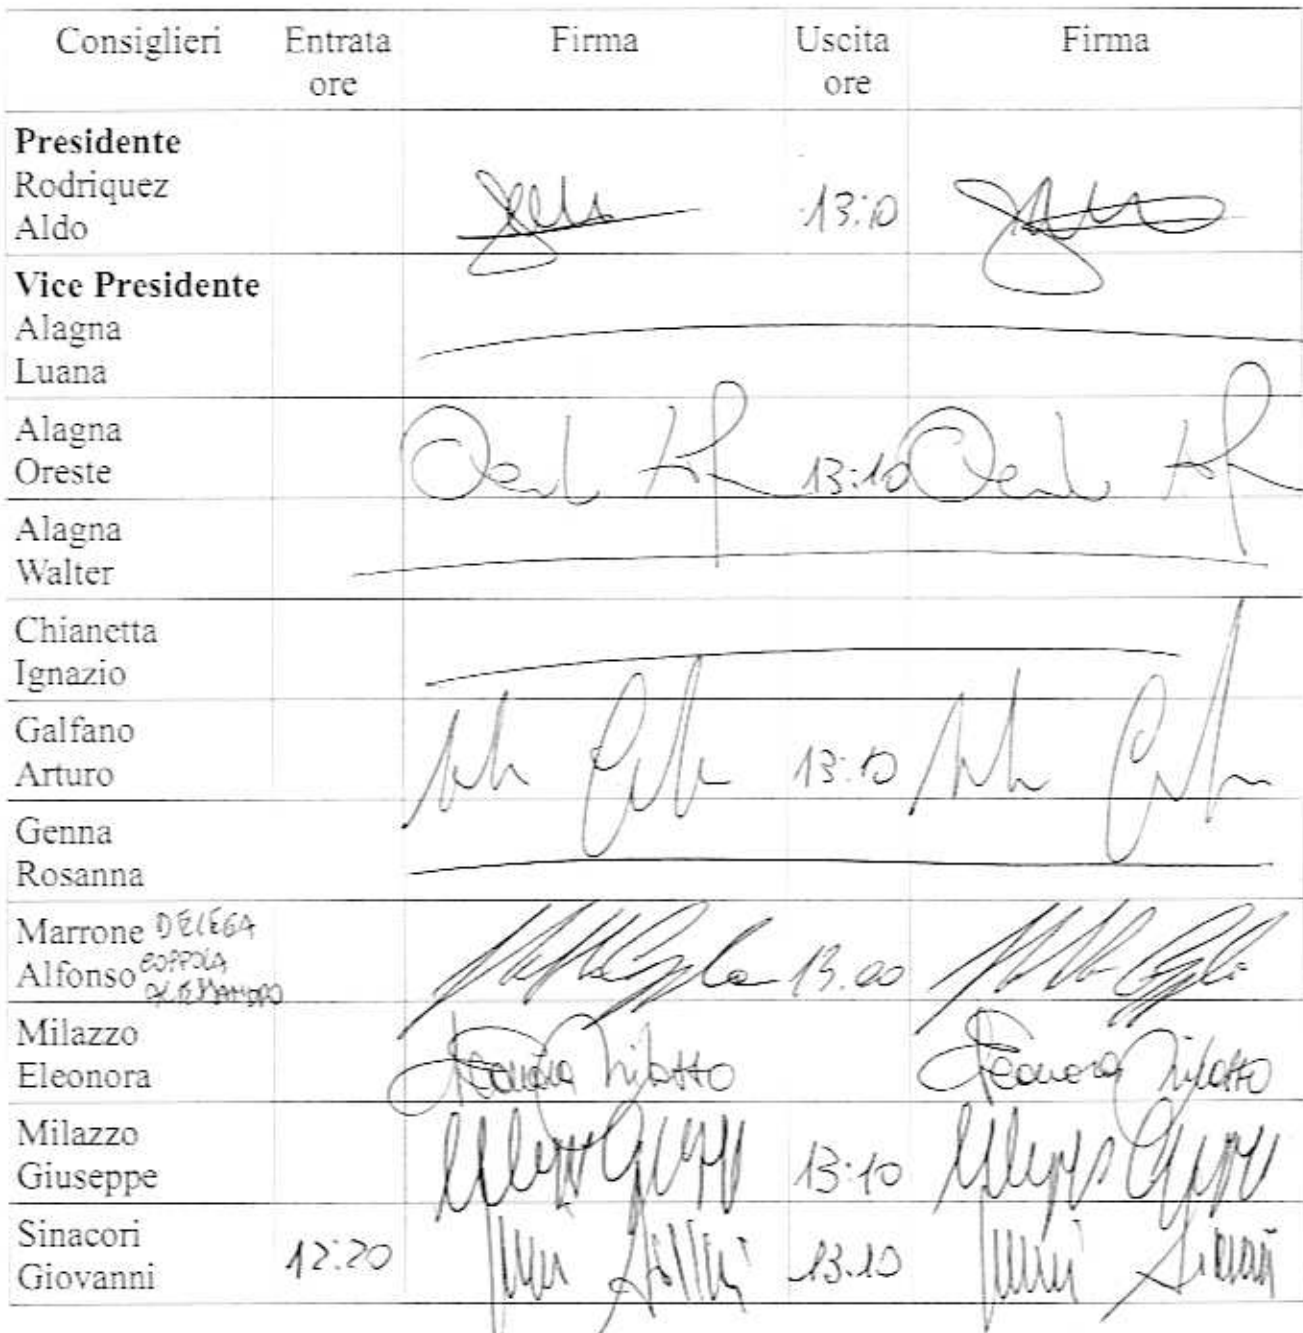 Consiglieri Entrata ore Firma Uscita ore Firma
Presidente
Rodriquez
Aldo 13:10
Vice Presidente
Alagna
Luana
Alagna
Oreste 13:10
Alagna
Walter
Chianetta
Ignazio
Galfano
Arturo 13:10
Genna
Rosanna
Marrone DELEGA
Alfonso COPPOLA
ALESSANDRO 13.00
Milazzo
Eleonora Eleonora Milazzo Eleonora Milazzo
Milazzo
Giuseppe 13:10
Sinacori
Giovanni 12:20 13.10